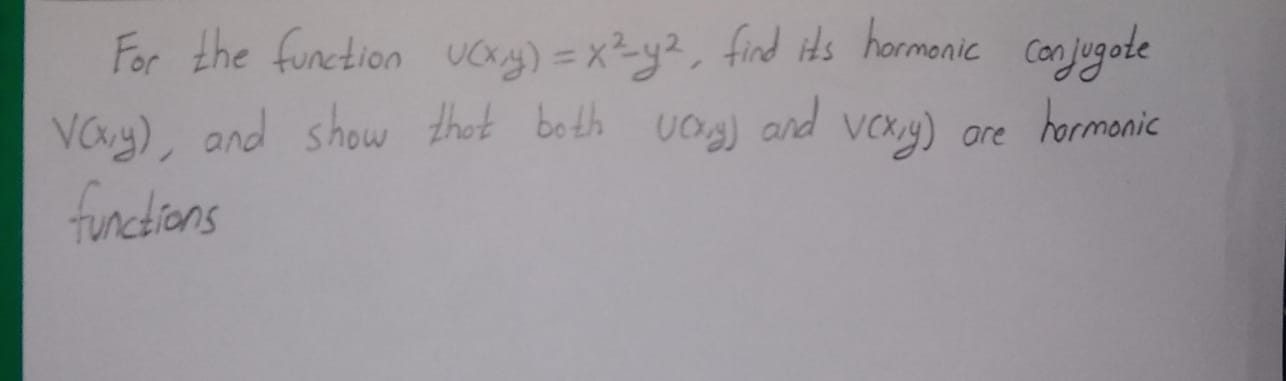 For the function u(x,y) = x²-y², find its harmonic conjugate
v(x,y), and show that both u(x,y) and v(x,y) are harmonic
functions